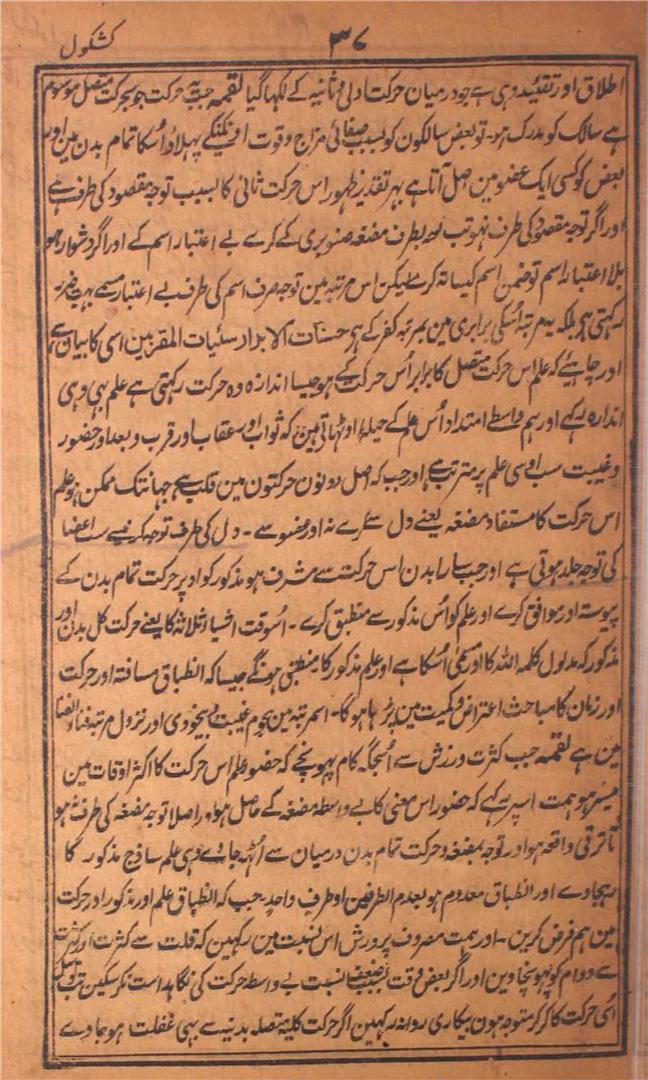 ۳۷
کشکول
اطلاق اور تقیید وہی ہے جو درمیان حرکت اولی و ثانیہ کے لکھا گیا لقمہ جب یہ حرکت جو بحرکت متصل موسوم
ہے سالک کو مدرک ہو۔ تو بعض سالکون کو بسبب صفائی مزاج و قوت پہلاؤ اُسکا تمام بدن مین اور
بعض کو کسی ایک عضو مین حاصل آتا ہے بہر تقدیر ظہور اس حرکت ثانی کا بسبب توجہ مقصود کی طرف ہے
اور اگر توجہ مقصود کی طرف نہو تب توجہ بطرف مضغہ صنوبری کے کرے بے اعتبار اسم کے اور اگر دشوار ہو
بلا اعتبار اسم تو ضمن اسم کیساتہ کرے لیکن اس مرتبہ مین توجہ صرف اسم کی طرف بے اعتبار مسمے بہت ضرر
رکہتی ہے بلکہ یہ مرتبہ اُسکی برابری مین بمرتبہ کفر کے ہے حسنات الابرار سئیات المقربین اسی کا بیان ہے
اور چاہئے کہ علم اس حرکت متصل کا برابر اُس حرکت کے ہو جیسا اندازہ وہ حرکت رکہتی ہے علم بہی وہی
اندازہ رکہے اور ہم واسطے امتداد اُس علم کے حیلہ اوٹہاتے ہین کہ ثواب اور عقاب اور قرب و بعد اور حضور
و غیبت سب اوسی علم پر مترتب ہے اور جب کہ اصل دونون حرکتون مین قلب ہے جہانتک ممکن ہو علم
اس حرکت کا مستفاد مضغہ یعنے دل سے کرے نہ اور عضو سے۔ دل کی طرف توجہ کرنیسے سب اعضا
کی توجہ جلد ہوتی ہے اور جب سارا بدن اس حرکت سے مشرف ہو مذکور کو اوپر حرکت تمام بدن کے
پیوستہ اور موافق کرے اور علم کو اُس مذکور سے منطبق کرے۔ اُسوقت اشیاء ثلاثہ کا یعنے حرکت کل بدن اور
مذکور کہ مدلول کلمہ اللہ کا اور مسمیٰ اُسکا ہے اور علم مذکور کا منطبق ہونگے جیسا کہ انطباق مسافتہ اور حرکت
اور زمان کا مباحث اعتراض و کمیت مین پڑہا ہو گا۔ اسمرتبہ مین ہجوم غیبت و بیخودی اور نزول مرتبہ فناء الفنا
مین ہے لقمہ جب کثرت ورزش سے اُسجگہ کام پہونچے کہ حضور علم اس حرکت کا اکثر اوقات مین
میسر ہو ہمت اسپر رکہے کہ حضور اس معنی کا بے واسطہ مضغہ کے حاصل ہو۔ اصلا توجہ مضغہ کی طرف نہو
تا ترقی واقعہ ہو اور توجہ بمضغہ و حرکت تمام بدن درمیان سے اُٹہہ جاوے وہی علم ساذج مذکور کا
رہجاوے اور انطباق معدوم ہو بعدم الطرفین او طرفٍ واحدٍ۔ جب کہ انطباق علم اور مذکور اور حرکت
مین ہم فرض کرین۔ اور ہمت مصروف پرورش اس نسبت مین رکہین کہ قلت سے کثرت اور کثرت
سے دوام کو پہونچاوین اور اگر بعض وقت بسبب ضعف نسبت بے واسطہ حرکت کی نگاہداست نکر سکین تب توسل
اُسی حرکت کا کر کر متوجہ ہون بیکاری روا نہ رکہین اگر حرکت کلیہ متصلہ بدنیہ سے بہی غفلت ہو جاوے